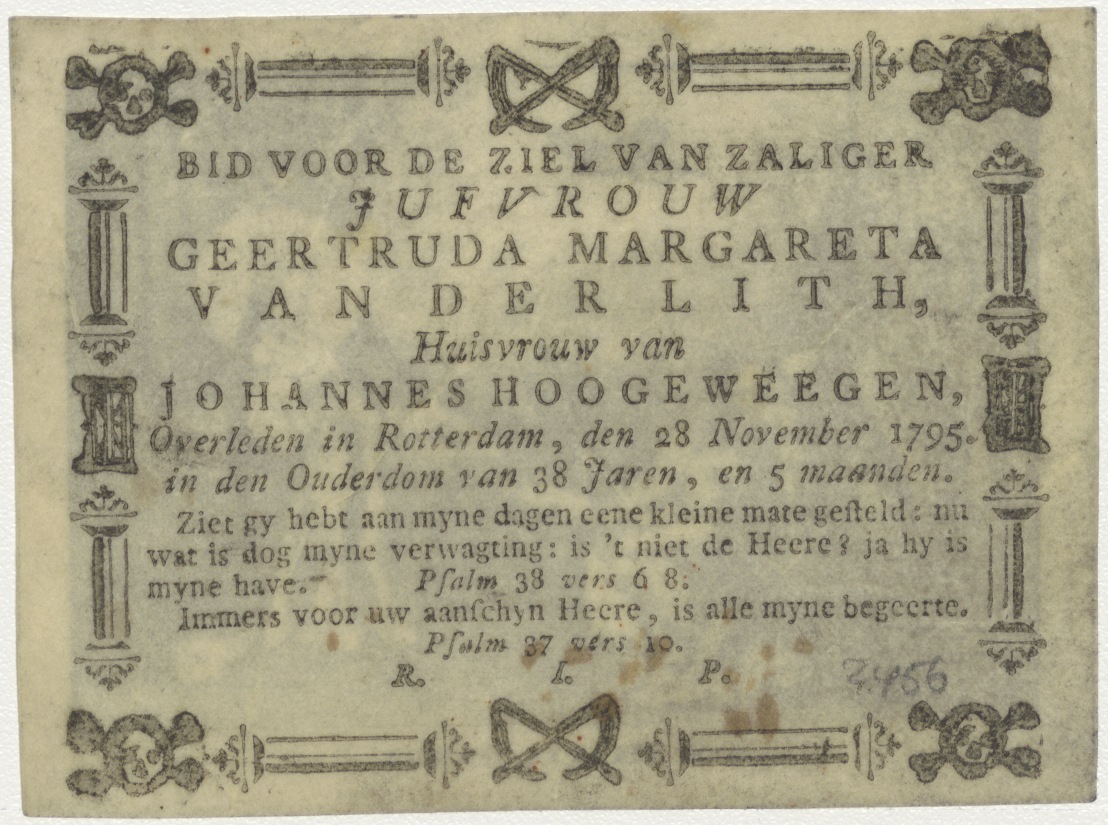 BID VOOR DE ZIEL VAN ZALIGER
JUFVROUW
GEERTRUDA MARGARETA
VAN DER LITH,
Huisvrouw van
JOHANNES HOOGEWEEGEN,
Overleden in Rotterdam, den 28 November 1795.
in den Ouderdom van 38 Jaren, en 5 maanden.
Ziet gy hebt aan myne dagen eene kleine mate geſteld: nu
wat is dog myne verwagting: is 't niet de Heere? ja hy is
myne have. Pſalm 38 vers 6 8.
Immers voor uw aanſchyn Heere, is alle myne begeerte.
Pſalm 37 vers 10.
R. I. P.
2456